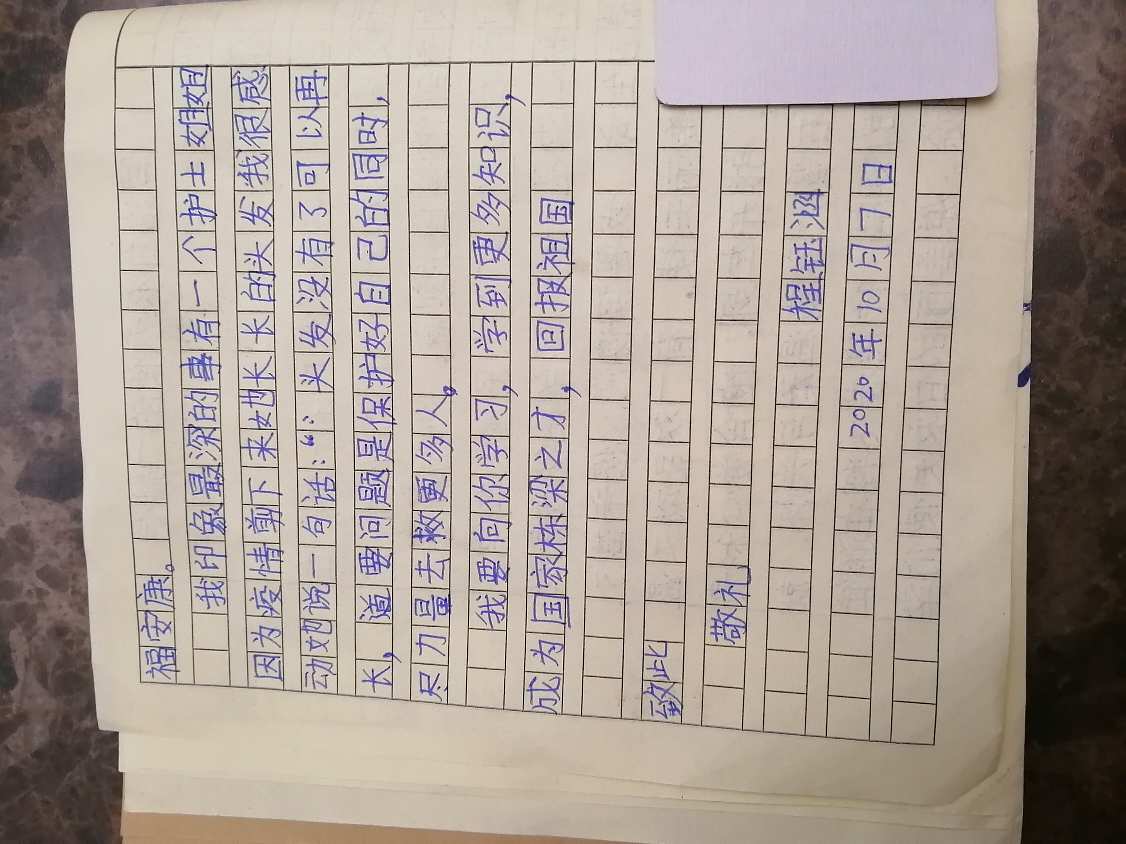 福安康。
我印象最深的事有一个护士姐姐
因为疫情剪下来她长长的头发我很感
动她说一句话：“：头发没有了可以再
长，道要问题是保护好自己的同时，
尽力量去救更多人。
我要向你学习，学到更多知识，
成为国家栋梁之才，回报祖国
致此
敬礼
程钰涵
2020年10月7日